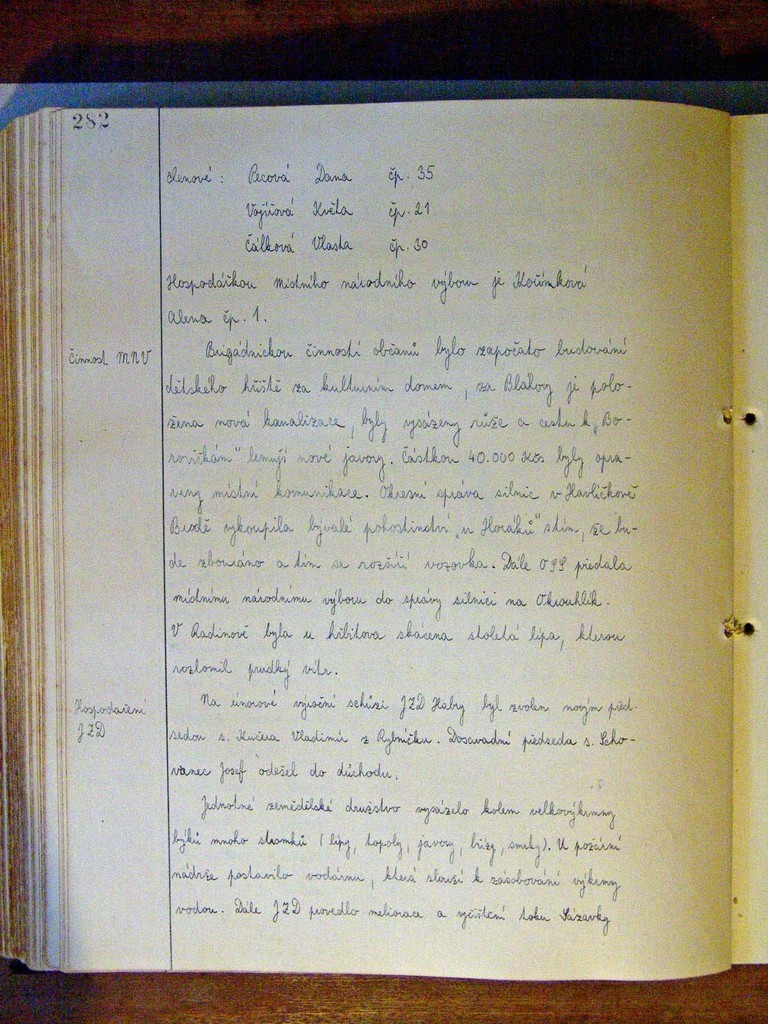 282
členové : Pecová Dana čp. 35
Vojířová Květa čp. 21
Čálková Vlasta čp. 30
Hospodářkou místního národního výboru je Kořínková
Alena čp. 1.
Činnost MNV
Brigádnickou činností občanů bylo započato budování
dětského hřiště za kulturním domem, za Bláhovy je polo-
žena nová kanalizace, byly vysázeny růže a cestu k „Bo-
rovičkám" lemují nové javory. Částkou 40.000 Kčs byly opra-
veny místní komunikace. Okresní správa silnic v Havlíčkově
Brodě vykoupila bývalé pohostinství „u Horáků" s tím, že bu-
de zbouráno a tím se rozšíří vozovka. Dále OSS předala
místnímu národnímu výboru do správy silnici na Okrouhlík.
V Radinově byla u hřbitova skácena stoletá lípa, kterou
rozlomil prudký vítr.
Hospodaření
JZD
Na únorové výroční schůzi JZD Habry byl zvolen novým před-
sedou s. Kučera Vladimír z Rybníčku. Dosavadní předseda s. Scho-
vanec Josef odešel do důchodu.
Jednotné zemědělské družstvo vysázelo kolem velkovýkrmny
býků mnoho stromků (lípy, topoly, javory, břízy, smrky). U požární
nádrže postavilo vodárnu, která slouží k zásobování výkrmny
vodou. Dále JZD provedlo meliorace a vyčištění toku Sázavky